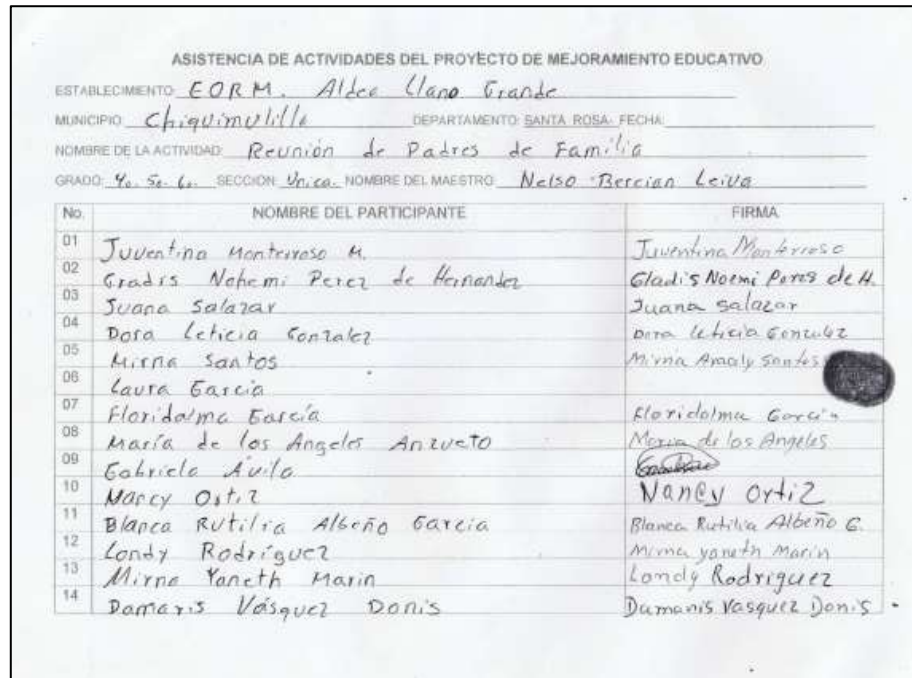 ASISTENCIA DE ACTIVIDADES DEL PROYECTO DE MEJORAMIENTO EDUCATIVO
ESTABLECIMIENTO: EORM. Aldea Llano Grande
MUNICIPIO: Chiquimulilla DEPARTAMENTO: SANTA ROSA- FECHA:
NOMBRE DE LA ACTIVIDAD: Reunión de Padres de Familia
GRADO: 4o. 5o. 6o. SECCION: Unica. NOMBRE DEL MAESTRO: Nelso Bercian Leiva
No. NOMBRE DEL PARTICIPANTE FIRMA
01 Juventina Monterroso M. Juventina Monterroso
02 Gradis Nohemi Perez de Hernandez Gladis Noemi Peres de H.
03 Juana Salazar Juana Salazar
04 Dora Leticia Gonzalez Dora Leticia Gonzulez
05 Mirna Santos Mirna Aracely Santos
06 Laura Garcia
07 Floridalma García Floridalma Garcia
08 María de los Angeles Anzueto Maria de los Angeles
09 Gabriela Avila
10 Marcy Ortiz Nancy Ortiz
11 Blanca Rutilia Albeño Garcia Blanca Rutilia Albeño G.
12 Londy Rodríguez Mirna yaneth Marin
13 Mirna Yaneth Marin Londy Rodriguez
14 Damaris Vásquez Donis Damanis Vasquez Donis